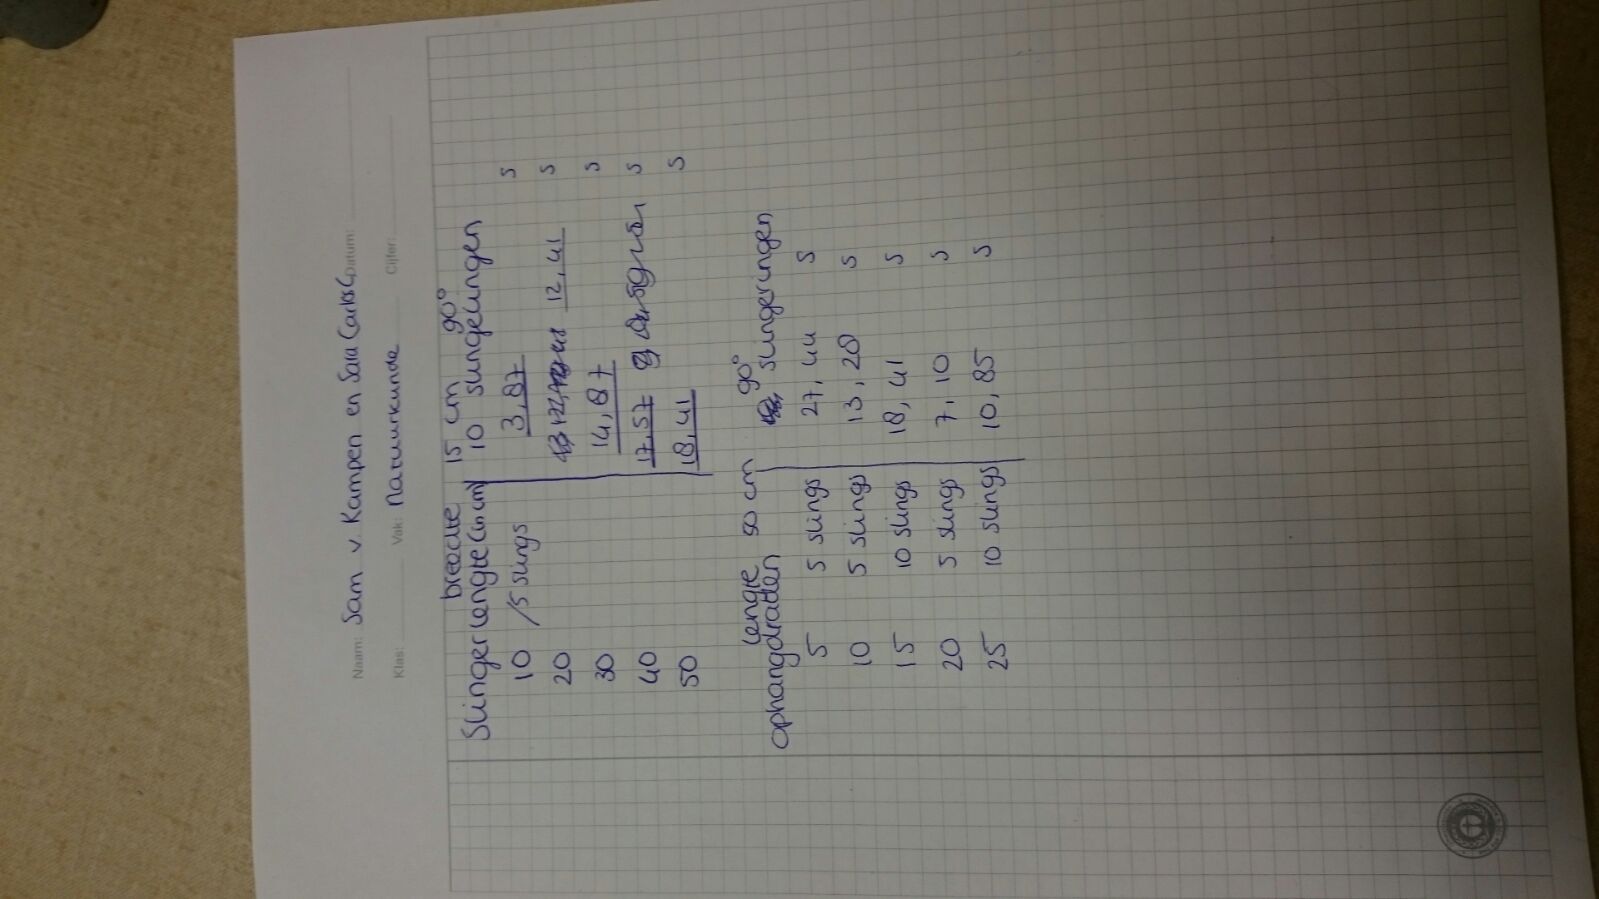 Naam: Sam v. Kampen en Sara Carlos C. Datum:
Klas: Vak: Natuurkunde Cijfer:
breedte 15 cm 90°
Slingerlengte (in cm) 10 slingelingen
10 /5 slings 3,87 s
20 12,41 s
30 14,87 s
40 17,57 s
50 18,41 s
lengte 50 cm 90°
ophangdratten slingeringen
5 5 slings 27,44 s
10 5 slings 13,20 s
15 10 slings 18,41 s
20 5 slings 7,10 s
25 10 slings 10,85 s